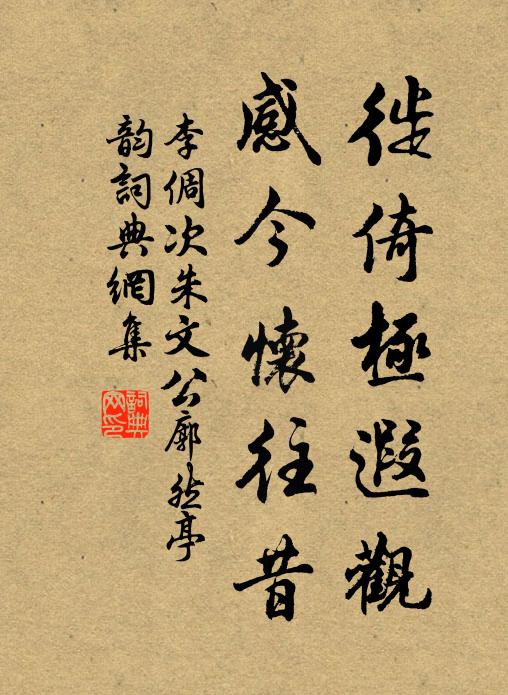 徙倚極遐觀
感今懷往昔
李倜次朱文公廓然亭
韵詞典網集
詞典网印